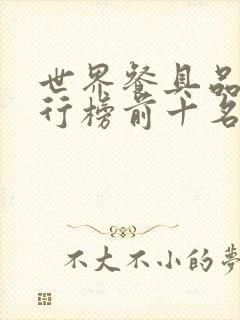 世界餐具品
行榜前十名
不大不小的夢